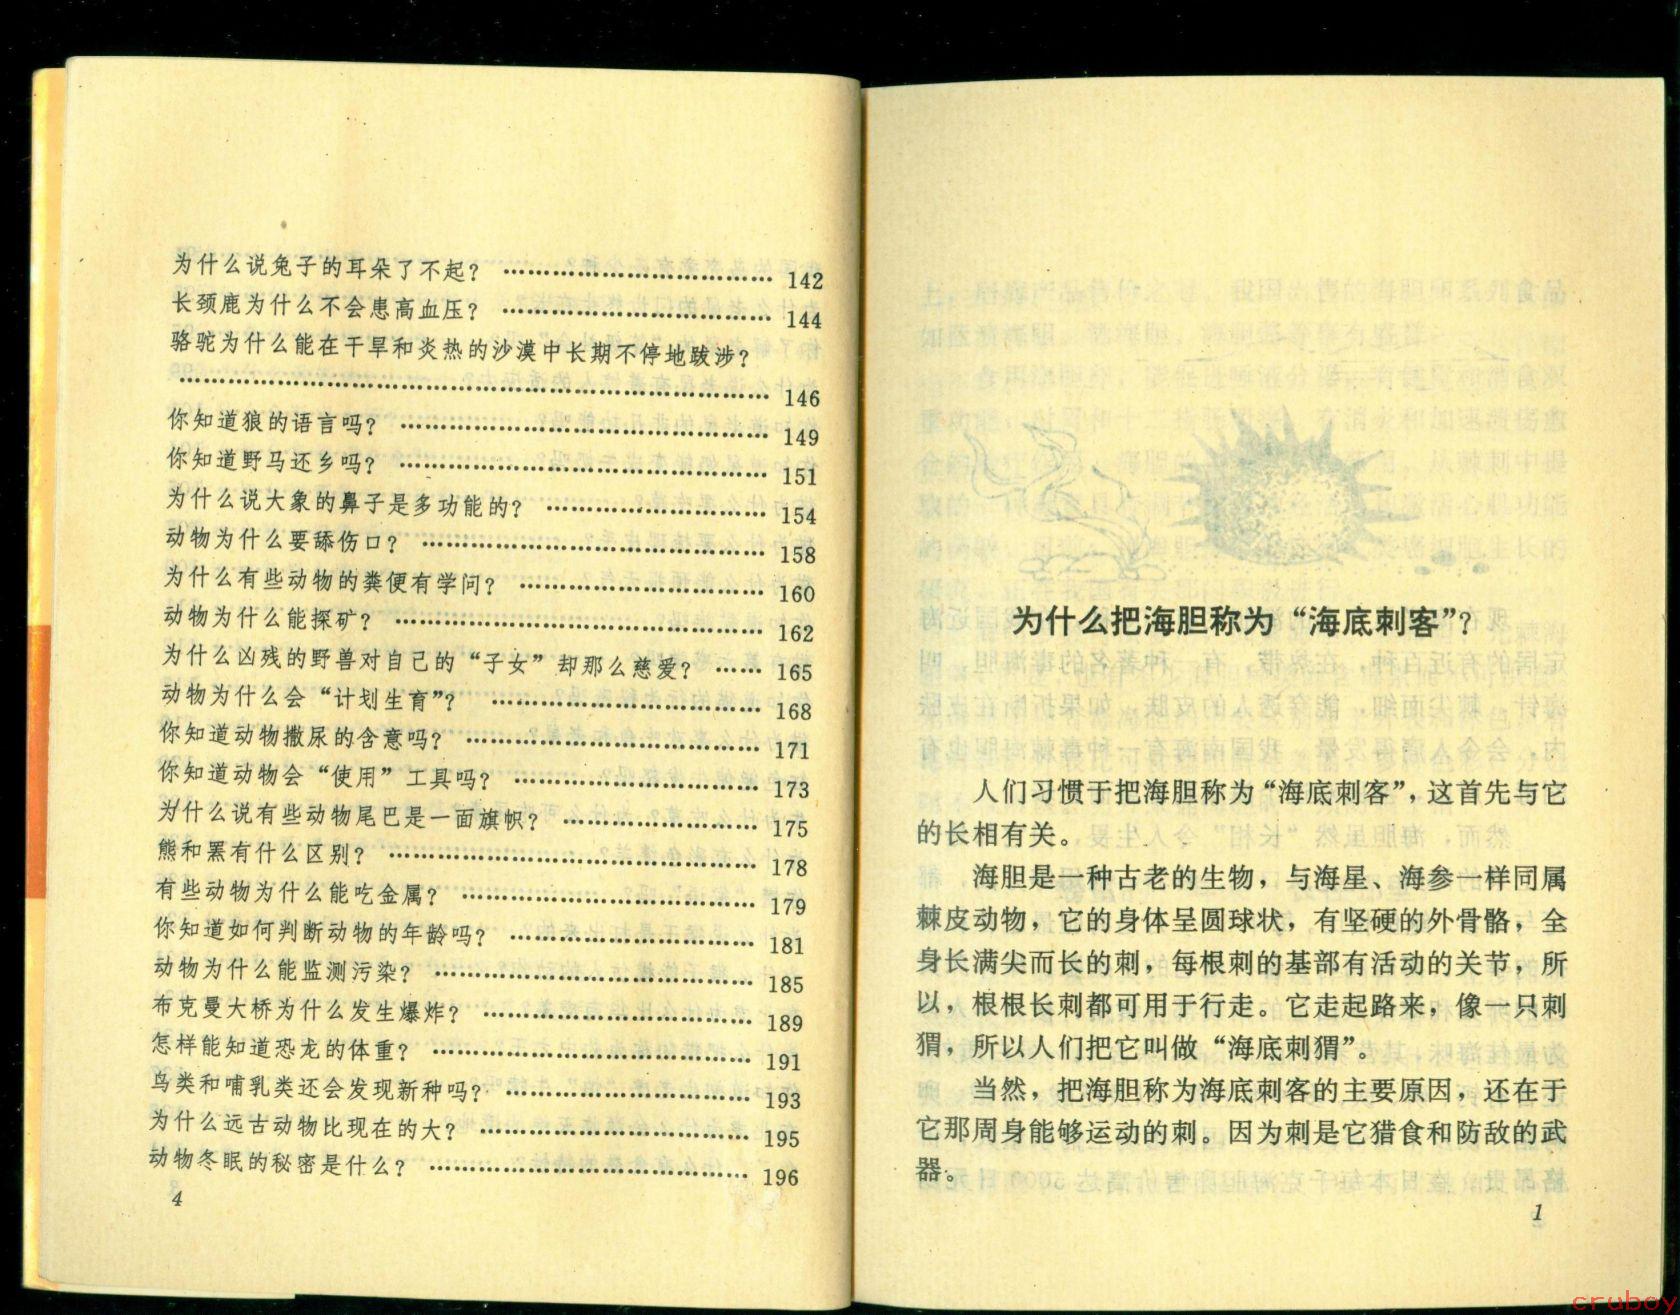 为什么说兔子的耳朵了不起？ …………………………… 142
长颈鹿为什么不会患高血压？ …………………………… 144
骆驼为什么能在干旱和炎热的沙漠中长期不停地跋涉？
…………………………………………………………… 146
你知道狼的语言吗？ …………………………………… 149
你知道野马还乡吗？ …………………………………… 151
为什么说大象的鼻子是多功能的？ …………………… 154
动物为什么要舔伤口？ ………………………………… 158
为什么有些动物的粪便有学问？ ……………………… 160
动物为什么能探矿？ …………………………………… 162
为什么凶残的野兽对自己的“子女”却那么慈爱？ …… 165
动物为什么会“计划生育”？ …………………………… 168
你知道动物撒尿的含意吗？ …………………………… 171
你知道动物会“使用”工具吗？ ………………………… 173
为什么说有些动物尾巴是一面旗帜？ ………………… 175
熊和罴有什么区别？ …………………………………… 178
有些动物为什么能吃金属？ …………………………… 179
你知道如何判断动物的年龄吗？ ……………………… 181
动物为什么能监测污染？ ……………………………… 185
布克曼大桥为什么发生爆炸？ ………………………… 189
怎样能知道恐龙的体重？ ……………………………… 191
鸟类和哺乳类还会发现新种吗？ ……………………… 193
为什么远古动物比现在的大？ ………………………… 195
动物冬眠的秘密是什么？ ……………………………… 196
4
为什么把海胆称为“海底刺客”？
人们习惯于把海胆称为“海底刺客”，这首先与它
的长相有关。
海胆是一种古老的生物，与海星、海参一样同属
棘皮动物，它的身体呈圆球状，有坚硬的外骨骼，全
身长满尖而长的刺，每根刺的基部有活动的关节，所
以，根根长刺都可用于行走。它走起路来，像一只刺
猬，所以人们把它叫做“海底刺猬”。
当然，把海胆称为海底刺客的主要原因，还在于
它那周身能够运动的刺。因为刺是它猎食和防敌的武
器。
1
cruboy